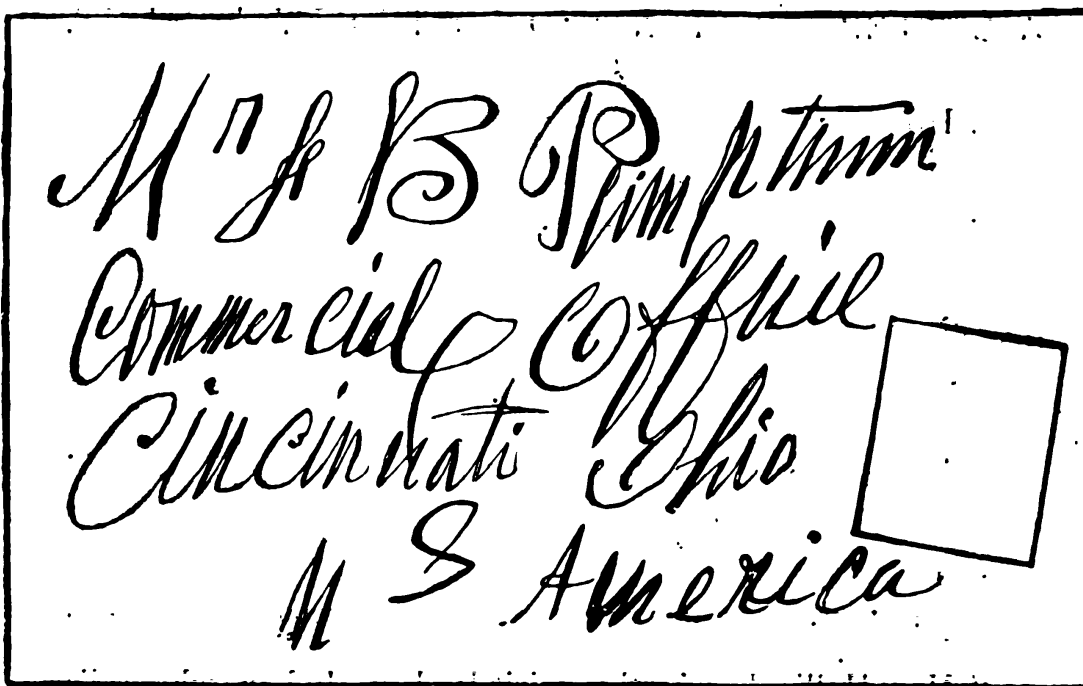 Mr B Plimpton
Commercial Office
Cincinnati Ohio
U S America